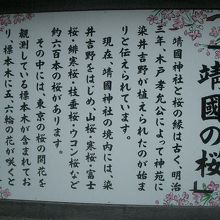 靖國の桜
一 靖國神社と桜の縁は古く、明治
三年、木戸孝允公によって神苑に
染井吉野が植えられたのが始ま
りと伝えられています。
現在、靖國神社の境内には、染
井吉野をはじめ、山桜・寒桜・富士
桜・緋寒桜・枝垂桜・ウコン桜など
約六百本の桜があります。
その中には、東京の桜の開花を
観測している標本木が含まれてお
り、標本木に五、六輪の花が咲くと